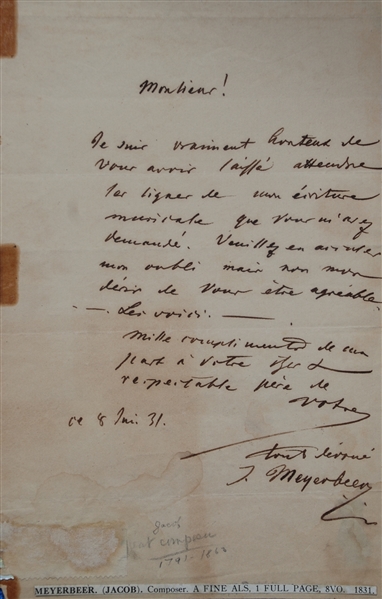 Monsieur!
Je suis vraiment honteux de
vous avoir laissé attendre
les lignes de mon écriture
musicale que vous m'avez
demandé. Veuillez en accuser
mon oubli mais non mon
désir de vous être agréable.
— Les voici. —
Mille compliments de ma
part à votre cher &
respectable père de
votre
ce 8 31.
tout dévoué
J. Meyerbeer
Jacob
composer
1791-186
MEYERBEER. (JACOB). Composer. A FINE ALS, 1 FULL PAGE, 8VO. 1831.